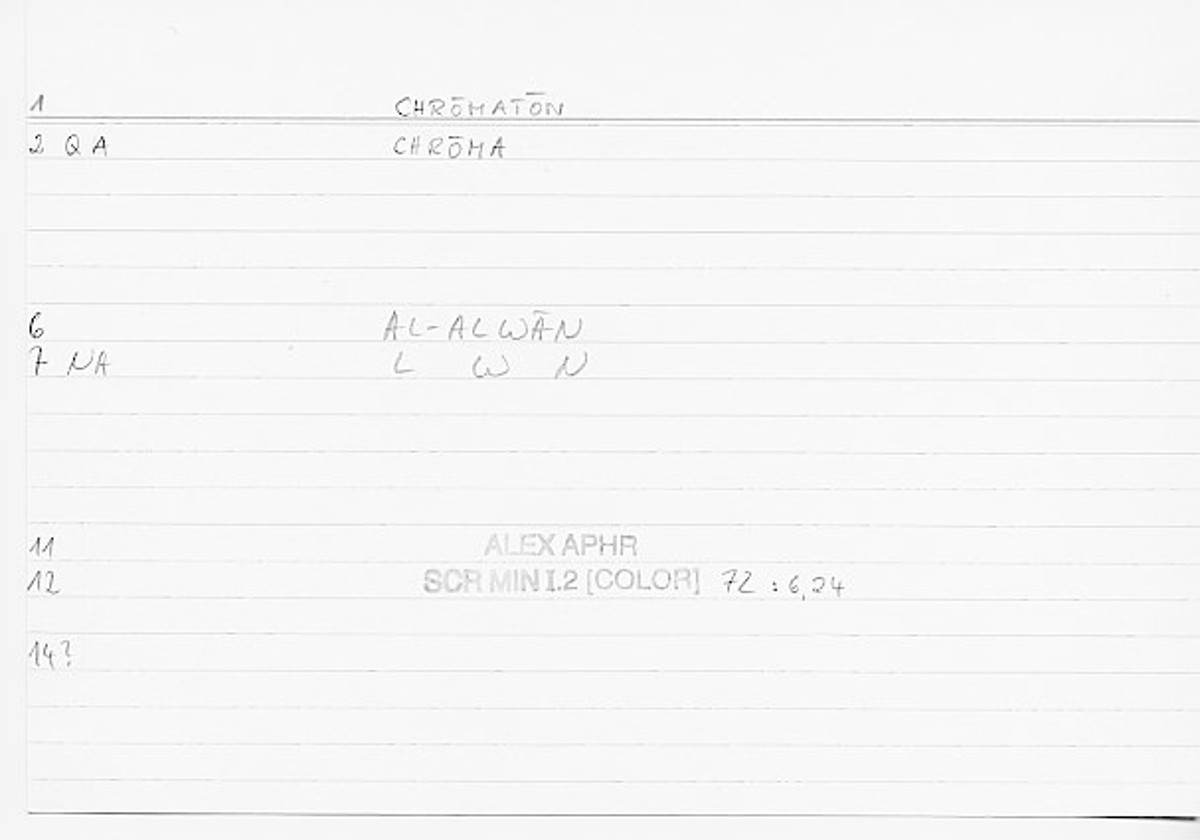 1 CHRŌMATŌN
2 Q A CHRŌMA
6 AL-ALWĀN
7 NA L W N
11 ALEX APHR
12 SCR MIN I.2 [COLOR] 72 : 6,24
14?